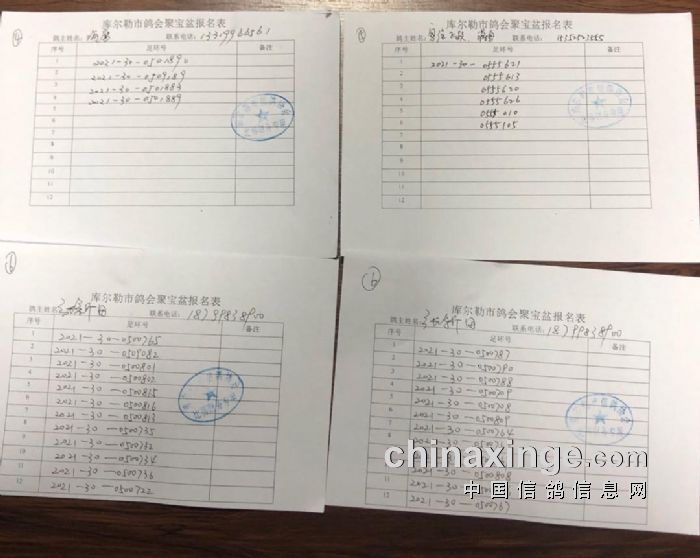 库尔勒市鸽会聚宝盆报名表
鸽主姓名: 联系电话:
序号 足环号 备注
1 2021-30-050189
2 2021-30-0509189
3 2021-30-0501883
4 2021-30-0501889
5
6
7
8
9
10
11
12
库尔勒市鸽会聚宝盆报名表
鸽主姓名: 联系电话:
序号 足环号 备注
1 2021-30-0555621
2 0555613
3 0555620
4 0555626
5 010
6 0555105
7
8
9
10
11
12
库尔勒市鸽会聚宝盆报名表
鸽主姓名: 联系电话: 18799838900
序号 足环号 备注
1 2021-30-0500765
2 2021-30-0505082
3 2021-30-0500801
4 2021-30-0500802
5 2021-30-0500815
6 2021-30-0500816
7 2021-30-0500813
8 2021-30-0500735
9 2021-30-0500732
10 2021-30-0500734
11 2021-30-0500736
12 2021-30-0500722
6
库尔勒市鸽会聚宝盆报名表
鸽主姓名: 联系电话: 18799838900
序号 足环号 备注
1 2021-30-0500787
2 2021-30-0500790
3 2021-30-0500788
4 2021-30-0500709
5 2021-30-0500708
6 2021-30-0500809
7 2021-30-0500764
8 2021-30-
11 0500808
12 2021-30-0500767
chinaxinge.com
中国信鸽信息网